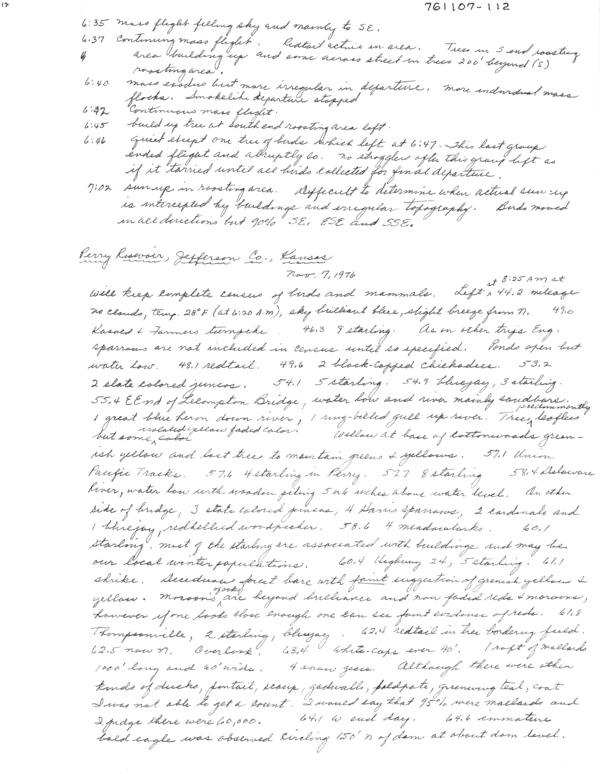 761107-112
6:35 mass flight filling sky and mainly to SE.
6:37 Continuing mass flight. Redtail active in area. Trees in S end roosting
area building up and some across street in trees 200' beyond (S)
roosting area.
6:40 mass exodus but more irregular in departure. more individual mass
flocks. Smokelike departure stopped
6:42 Continuous mass flight.
6:45 build up tree at south end roosting area left.
6:46 quiet except one tree of birds which left at 6:47. This last group
ended flight and abruptly so. no straggler after this group left as
if it tarried until all birds collected for final departure.
7:02 sun up in roosting area. Difficult to determine when actual sun-up
is intercepted by buildings and irregular topography. Birds moved
in all directions but 90% SE, ESE and SSE.
Perry Resevoir, Jefferson Co., Kansas
Nov. 7, 1976
Will keep complete census of birds and mammals. Left at 8:25 AM at 44.2 mileage
no clouds, temp. 28°F (at 6:20 A.M), sky brilliant blue, slight breeze from N. 49.0
Kasold & Farmers turnpike. 46.3 9 starling. As on other trips Eng.
sparrows are not included in census until so specified. Ponds open but
water low. 48.1 redtail. 49.6 2 black-capped chickadees. 53.2
2 slate colored juncos. 54.1 5 starling. 54.9 bluejay, 3 starling.
55.4 E End of Lecompton Bridge, water low and river mainly sandbars.
1 great blue heron down river, 1 ring-billed gull up river. Trees predominantly leafless
but some isolated yellow faded color. Willow at base of cottonwoods green-
ish yellow and last trees to maintain greens & yellows. 57.1 Union
Pacific Tracks. 57.6 4 starling in Perry. 57.7 8 starling 58.4 Delaware
River, water low with wooden piling 5 or 6 inches above water level. On other
side of bridge, 3 slate colored juncos, 4 Harris sparrows, 2 cardinals and
1 bluejay, redbellied woodpecker. 58.6 4 meadowlarks. 60.1
starling. most of the starling are associated with buildings and may be
our local winter populations. 60.4 Highway 24, 5 starling. 61.1
shrike. Deciduous forest bare with faint suggestion of greenish yellow &
yellow. Maroons are beyond brilliance and now faded reds & maroons,
however if one looks close enough one can see faint evidence of reds. 61.8
Thompsonville, 2 starling, bluejay. 62.4 redtail in tree bordering field.
62.5 now N. Overlook. 63.4 White-caps over 40'. 1 raft of mallards
1000' long and 40' wide. 4 snow geese. Although there were other
kinds of ducks, pintail, scaup, gadwalls, baldpate, greenwing teal, coot
I was not able to get a count. I would say that 95% were mallards and
I judge there were 60,000. 64.1 W end day. 64.6 immature
bald eagle was observed circling 150' N of dam at about dam level.